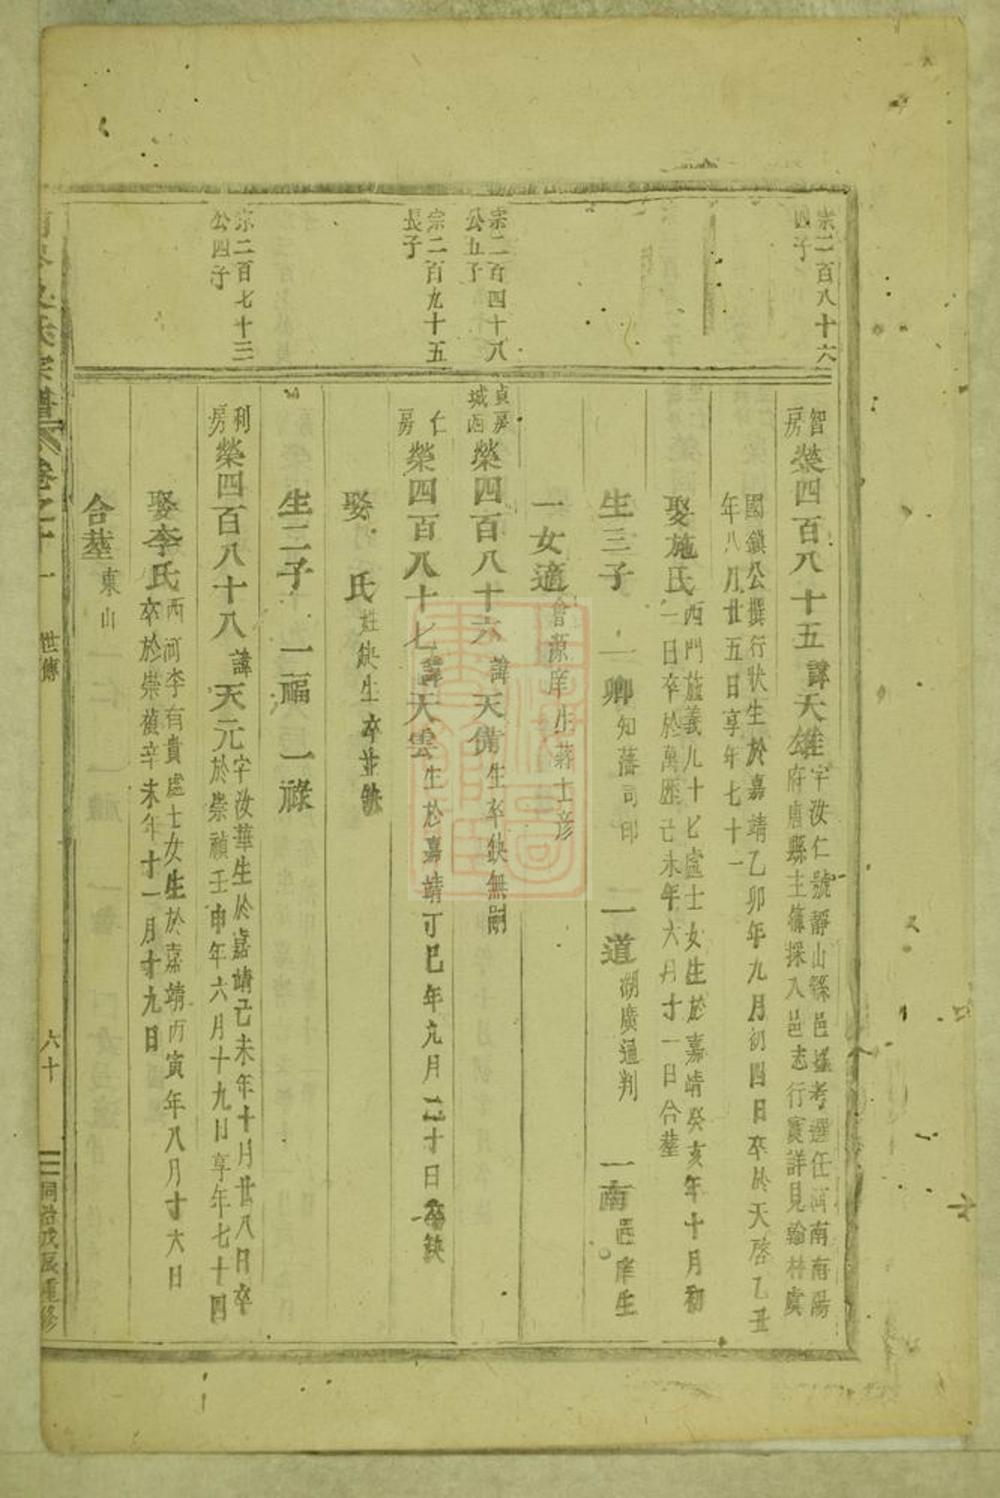 宗二百八十六
四子
智房
榮四百八十五諱天雄字汝仁號靜山繇邑掾考選任河南南陽
府唐縣主簿採入邑志行實詳見翰林虞
國鎮公撰行狀生於嘉靖乙卯年九月初四日卒於天啓乙丑
年八月廿五日享年七十一
娶施氏西門施義九十七處士女生於嘉靖癸亥年十月初
一日卒於萬歷己未年六月十一日合塟
生三子 一卿知藩司印 一道湖廣通判 一南邑庠生
一女適會源庠生蔣士彦
宗二百四十八
公五子
貞房
城西
榮四百八十六諱天備生卒缺無嗣
宗二百九十五
長子
仁房
榮四百八十七諱天雲生於嘉靖丁巳年九月二十日卒缺
娶 氏姓缺生卒並缺
生二子 一福 一祿
宗二百七十三
公四子
利房
榮四百八十八諱天元字汝華生於嘉靖己未年十月廿八日卒
於崇禎壬申年六月十九日享年七十四
娶李氏西河李有貴處士女生於嘉靖丙寅年八月十六日
卒於崇禎辛未年十一月十九日
合塟東山
氏宗譜 卷之十一 世傳 六十 同治戊辰重修